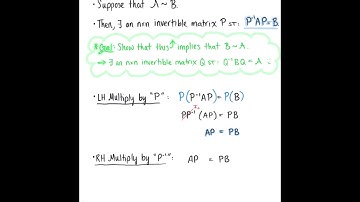 • Suppose that A ~ B.
• Then, ∃ an non invertible matrix P ST: P⁻¹AP = B.
* Goal: Show that this implies that B ~ A.
→ ∃ an non invertible matrix Q ST: Q⁻¹BQ = A
• LH Multiply by "P": P(P⁻¹AP) = P(B)
PP⁻¹(AP) = PB
AP = PB
• RH Multiply by "P⁻¹": AP = PB